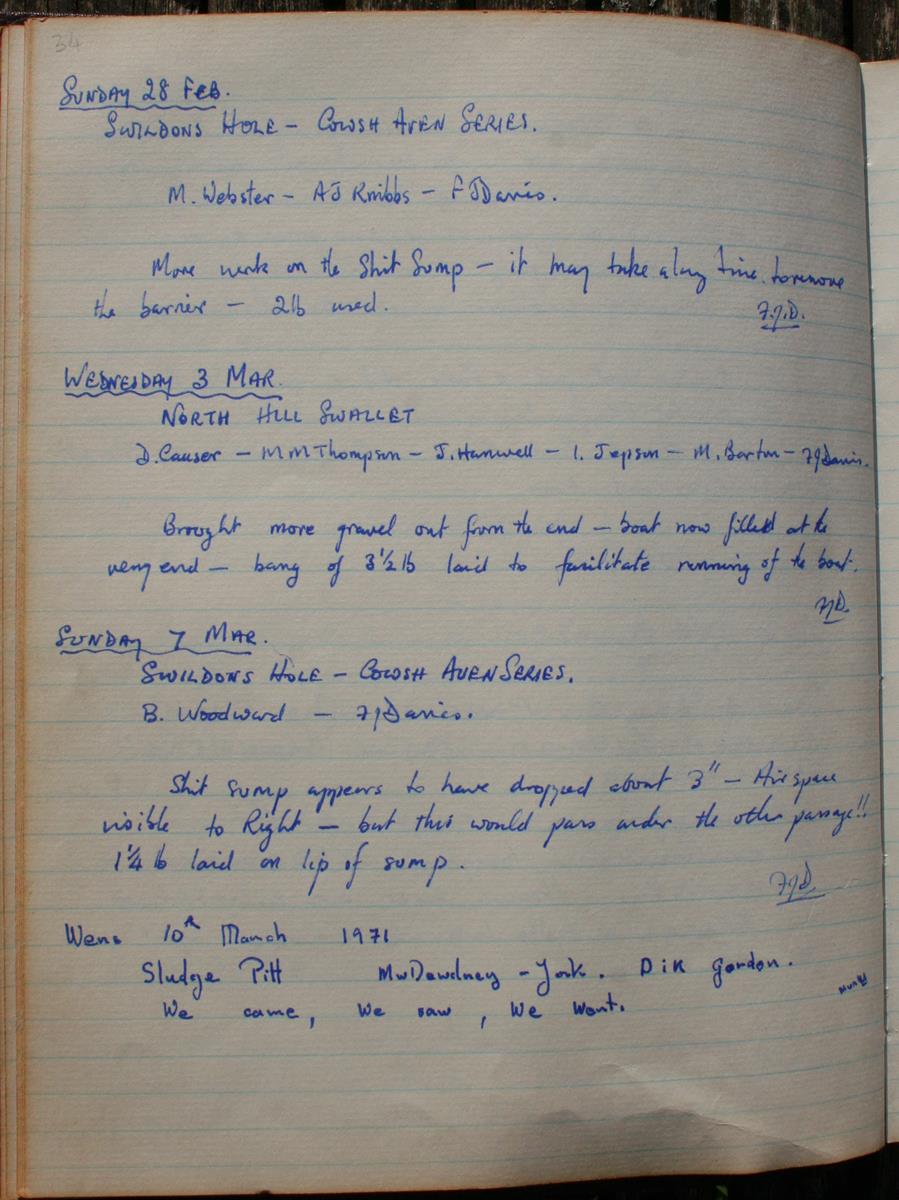 34
SUNDAY 28 FEB.
SWILDONS HOLE - COWSH AVEN SERIES.
M. Webster - A J Knibbs - F J Davies.
More work on the Shit Sump - it may take a long time to remove
the barrier - 2lb used.
F.J.D.
WEDNESDAY 3 MAR.
NORTH HILL SWALLET
D. Causer - M M Thompson - J. Hanwell - I. Jepson - M. Barton - F J Davies.
Brought more gravel out from the end - boat now filled at the
very end - bang of 3½ lb laid to facilitate running of the boat.
F J D.
SUNDAY 7 MAR.
SWILDONS HOLE - COWSH AVEN SERIES.
B. Woodward - F J Davies.
Shit sump appears to have dropped about 3" - Airspace
visible to Right - but this would pass under the other passage!!
1¼ lb laid on lip of sump.
F J D
Wens 10th March 1971
Sludge Pitt Mw Dewdney - York. Dik Gordon.
We came, We saw, We went.